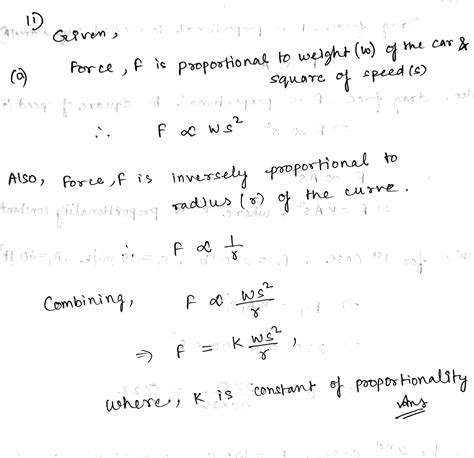 11) Given,
(a) Force, F is proportional to weight (w) of the car &
square of speed (s)
∴ F ∝ ws²
Also, force, f is inversely proportional to
radius (r) of the curve.
∴ F ∝ 1/r
Combining, F ∝ ws²/r
⇒ F = K ws²/r ,
where, K is constant of proportionality
Ans